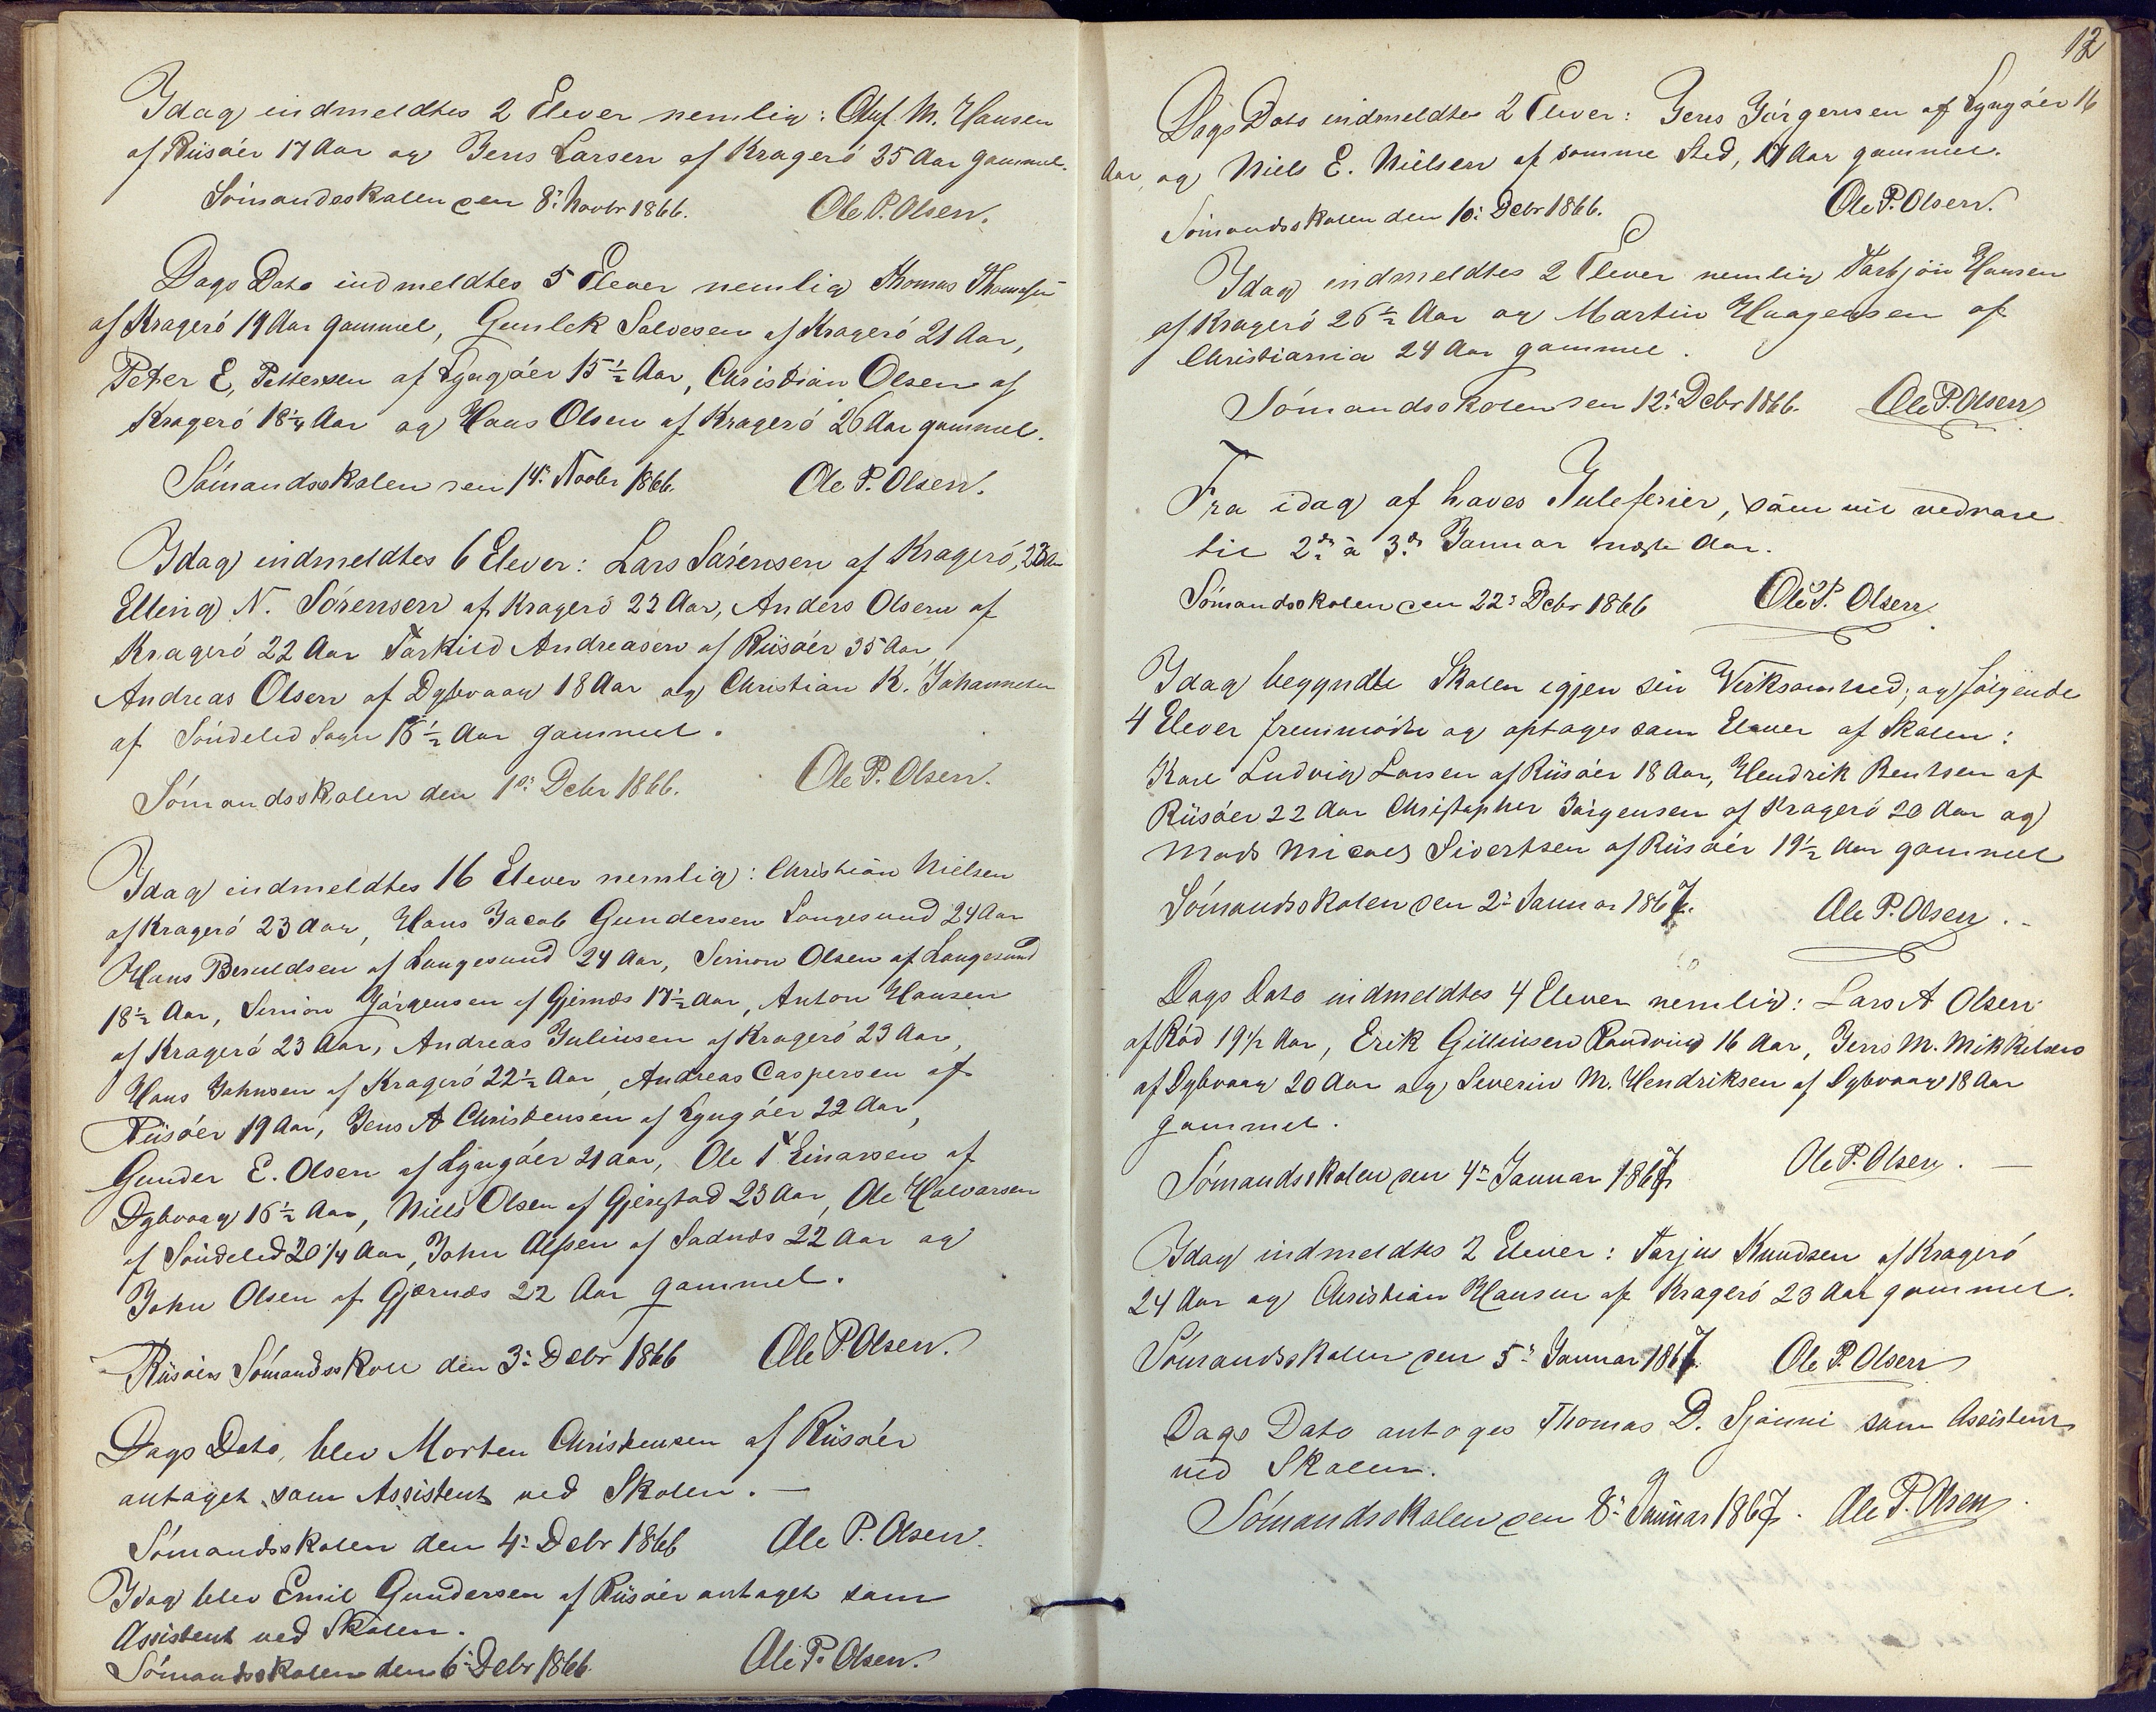 Idag indmeldtes 2 Elever nemlig: Oluf M. Hansen
af Riisøer 17 Aar og Jens Larsen af Kragerø 35 Aar gammel.
Sømandsskolen den 8: Novbr 1866. Ole P. Olsen.
Dags Dato indmeldtes 5 Elever nemlig Thomas Thomesen
af Kragerø 19 Aar gammel, Gunlek Salvesen af Kragerø 21 Aar,
Peter E, Pettersen af Lyngøer 15 1/2 Aar, Christian Olsen af
Kragerø 18 1/4 Aar og Hans Olsen af Kragerø 26 Aar gammel.
Sømandsskolen den 14: Novbr 1866. Ole P. Olsen.
Idag indmeldtes 6 Elever: Lars Sørensen af Kragerø,
Elling N. Sørensen af Kragerø 22 Aar, Anders Olsen af
Kragerø 22 Aar Tarkild Andreasen af Riisøer 35 Aar,
Andreas Olsen af Dybvaag 18 Aar og Christian K. Johannesen
af Søndeled Sogn 18 1/2 Aar gammel.
Sømandsskolen den 1ste Debr 1866. Ole P. Olsen.
Idag indmeldtes 16 Elever nemlig: Christian Nielsen
af Kragerø 23 Aar, Hans Jacob Gundersen Langesund 24 Aar
Hans Beruldsen af Langesund 24 Aar, Simon Olsen af Langesund
18 1/2 Aar, Simon Jørgensen af Gjernæs 17 1/2 Aar, Anton Hansen
af Kragerø 23 Aar, Andreas Juliusen af Kragerø 23 Aar,
Hans Johnsen af Kragerø 22 1/2 Aar, Andreas Caspersen af
Riisøer 19 Aar, Jens A Christensen af Lyngøer 22 Aar,
Gunder E. Olsen af Lyngøer 21 Aar, Ole T Einarsen af
Dybvaag 16 1/2 Aar, Niels Olsen af Gjerstad 23 Aar, Ole Halvorsen
af Søndeled 20 1/4 Aar, John Olsen af Sadnæs 22 Aar og
John Olsen af Gjærnæs 22 Aar gammel.
Riisøers Sømandsskole den 3: Debr 1866 Ole P. Olsen.
Dags Dato, blev Morten Christensen af Riisøer
antaget som Assistent ved Skolen. —
Sømandsskolen den 4: Debr 1866 Ole P. Olsen.
Idag blev Emil Gundersen af Riisøer antaget som
Assistent ved Skolen.
Sømandsskolen den 6: Debr 1866. Ole P. Olsen.
12
Dags Dato indmeldtes 2 Elever: Jens Jørgensen af Lyngøer 16
Aar, og Niels E. Nielsen af samme Sted, 17 Aar gammel.
Sømandsskolen den 10: Debr 1866. Ole P. Olsen.
Idag indmeldtes 2 Elever nemlig Tarbjøn Hansen
af Kragerø 26 1/2 Aar og Martin Haagensen af
Christiania 24 Aar gammel.
Sømandsskolen den 12: Debr 1866. Ole P. Olsen
Fra idag af haves Juleferier, som vil vedvare
til 2den à 3de Januar næste Aar.
Sømandsskolen den 22: Debr 1866 Ole P. Olsen.
Idag begyndte Skolen igjen sin Virksomhed; og følgende
4 Elever fremmødte og optages som Elever af Skolen:
Karl Ludvig Larsen af Riisøer 18 Aar, Hendrik Bentsen af
Riisøer 22 Aar Christopher Jørgensen af Kragerø 20 Aar og
Mads Micael Sivertsen af Riisøer 19 1/2 Aar gammel
Sømandsskolen den 2: Januar 1867. Ole P. Olsen.
Dags Dato indmeldtes 4 Elever nemlig: Lars A Olsen
af Rød 19 1/2 Aar, Erik Gillinsen Randvig 16 Aar, Jens M. Mikkelsen
af Dybvaag 20 Aar og Severin M. Hendriksen af Dybvaag 18 Aar
gammel.
Sømandsskolen den 4: Januar 1867 Ole P. Olsen. —
Idag indmeldtes 2 Elever: Tarjus Knudsen af Kragerø
24 Aar og Christian Hansen af Kragerø 23 Aar gammel.
Sømandsskolen den 5: Januar 1867. Ole P. Olsen
Dags Dato antoges Thomas D. Sjønni som Assistent
ved Skolen.
Sømandsskolen den 8: Januar 1867. Ole P. Olsen